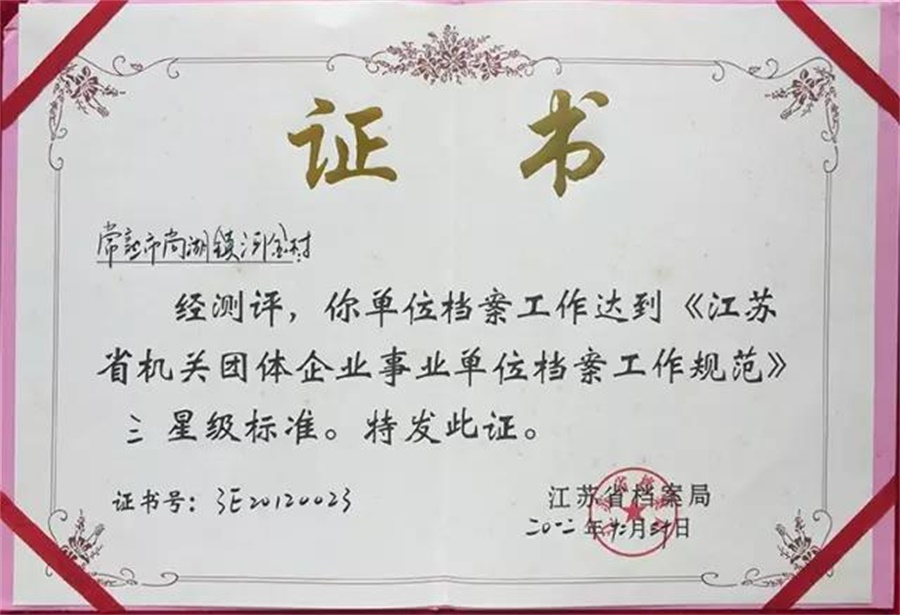 证书
常熟市尚湖镇河金村
经测评，你单位档案工作达到《江苏
省机关团体企业事业单位档案工作规范》
三星级标准。特发此证。
证书号：3E20120023
江苏省档案局
二〇一二年十二月三十日